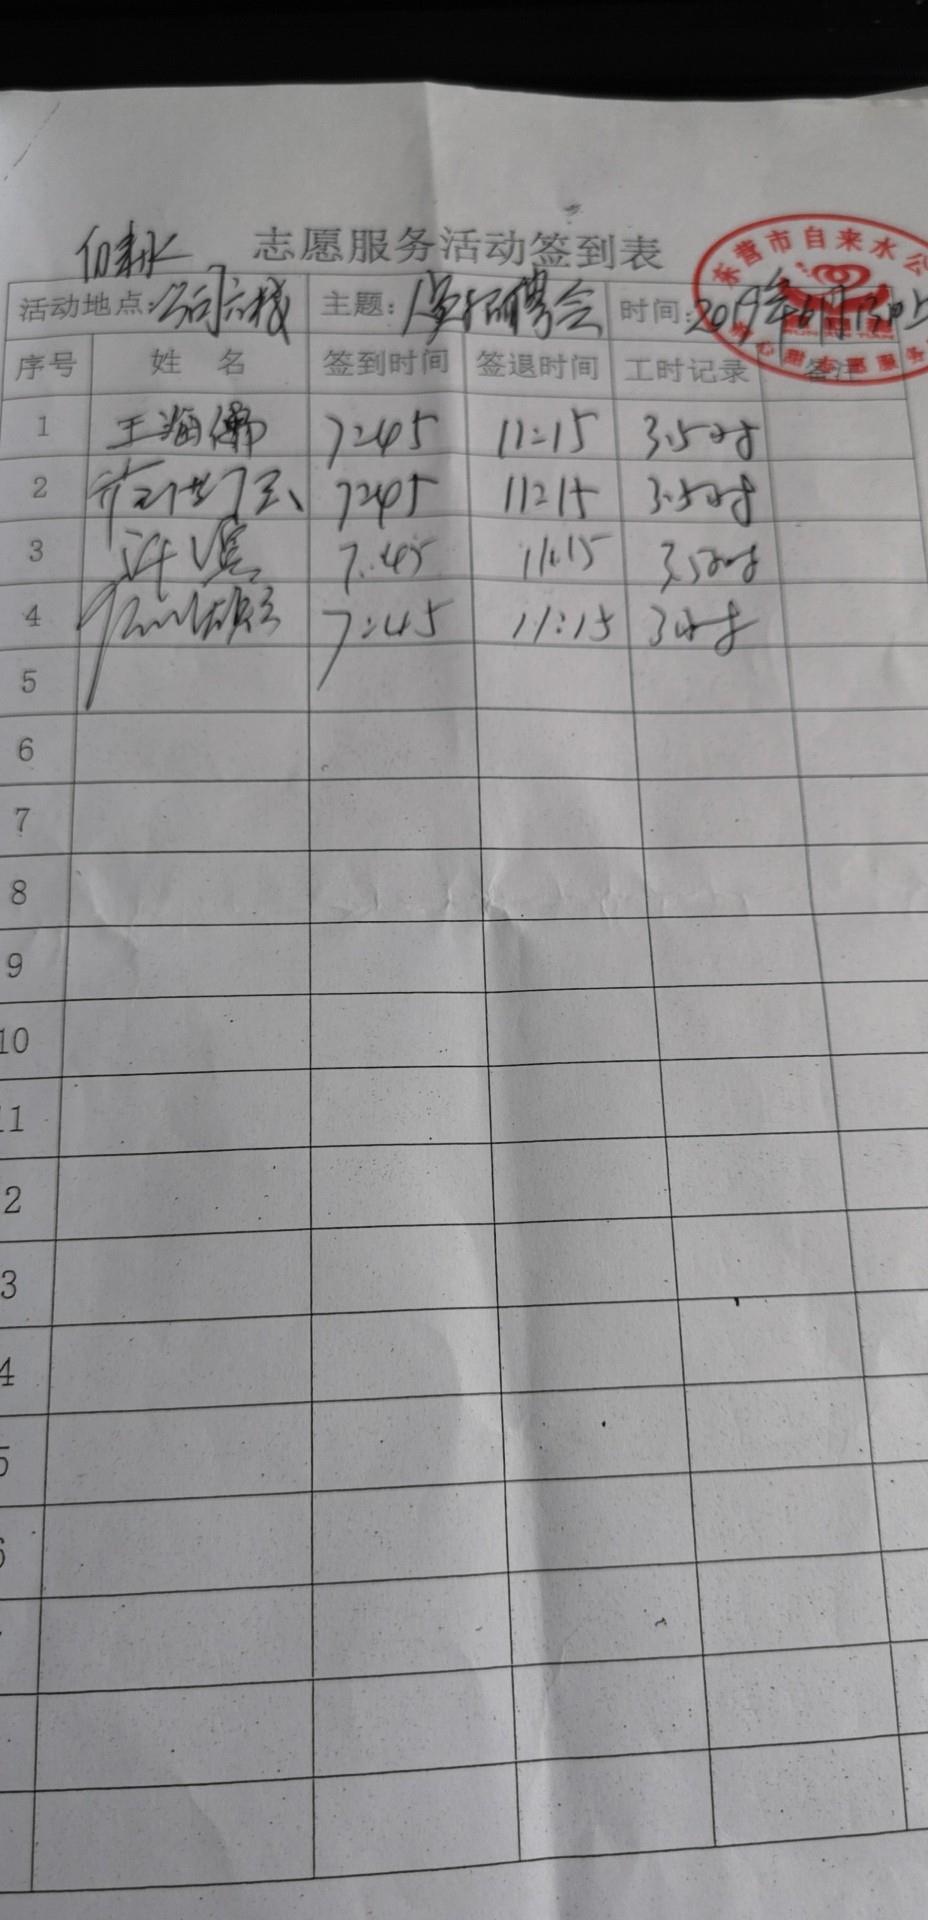 自来水
志愿服务活动签到表
东营市自来水公
活动地点:公司六楼 主题: 招聘会 时间:2019年6月13日上
心甜 志愿服务
序号 姓 名 签到时间 签退时间 工时记录 备注
1 王海 7:45 11:15 3.5时
2 7:45 11:15 3.5时
3 许 7:45 11:15 3.5时
4 7:45 11:15 3时
5
6
7
8
9
10
11
2
3
4
5
6